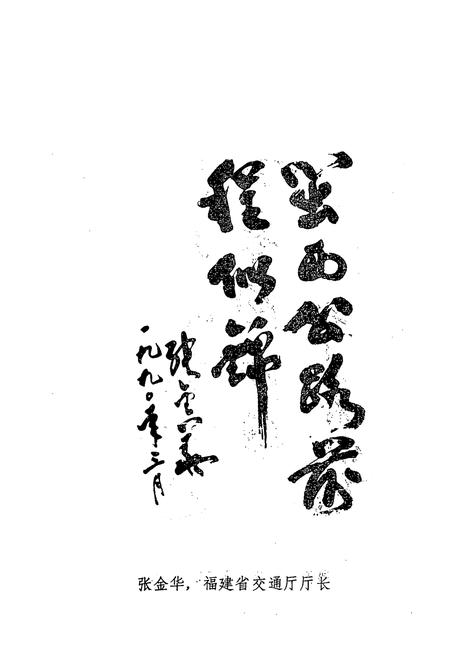 闽西公路前
程似锦
张金华
一九九〇年三月
张金华，福建省交通厅厅长